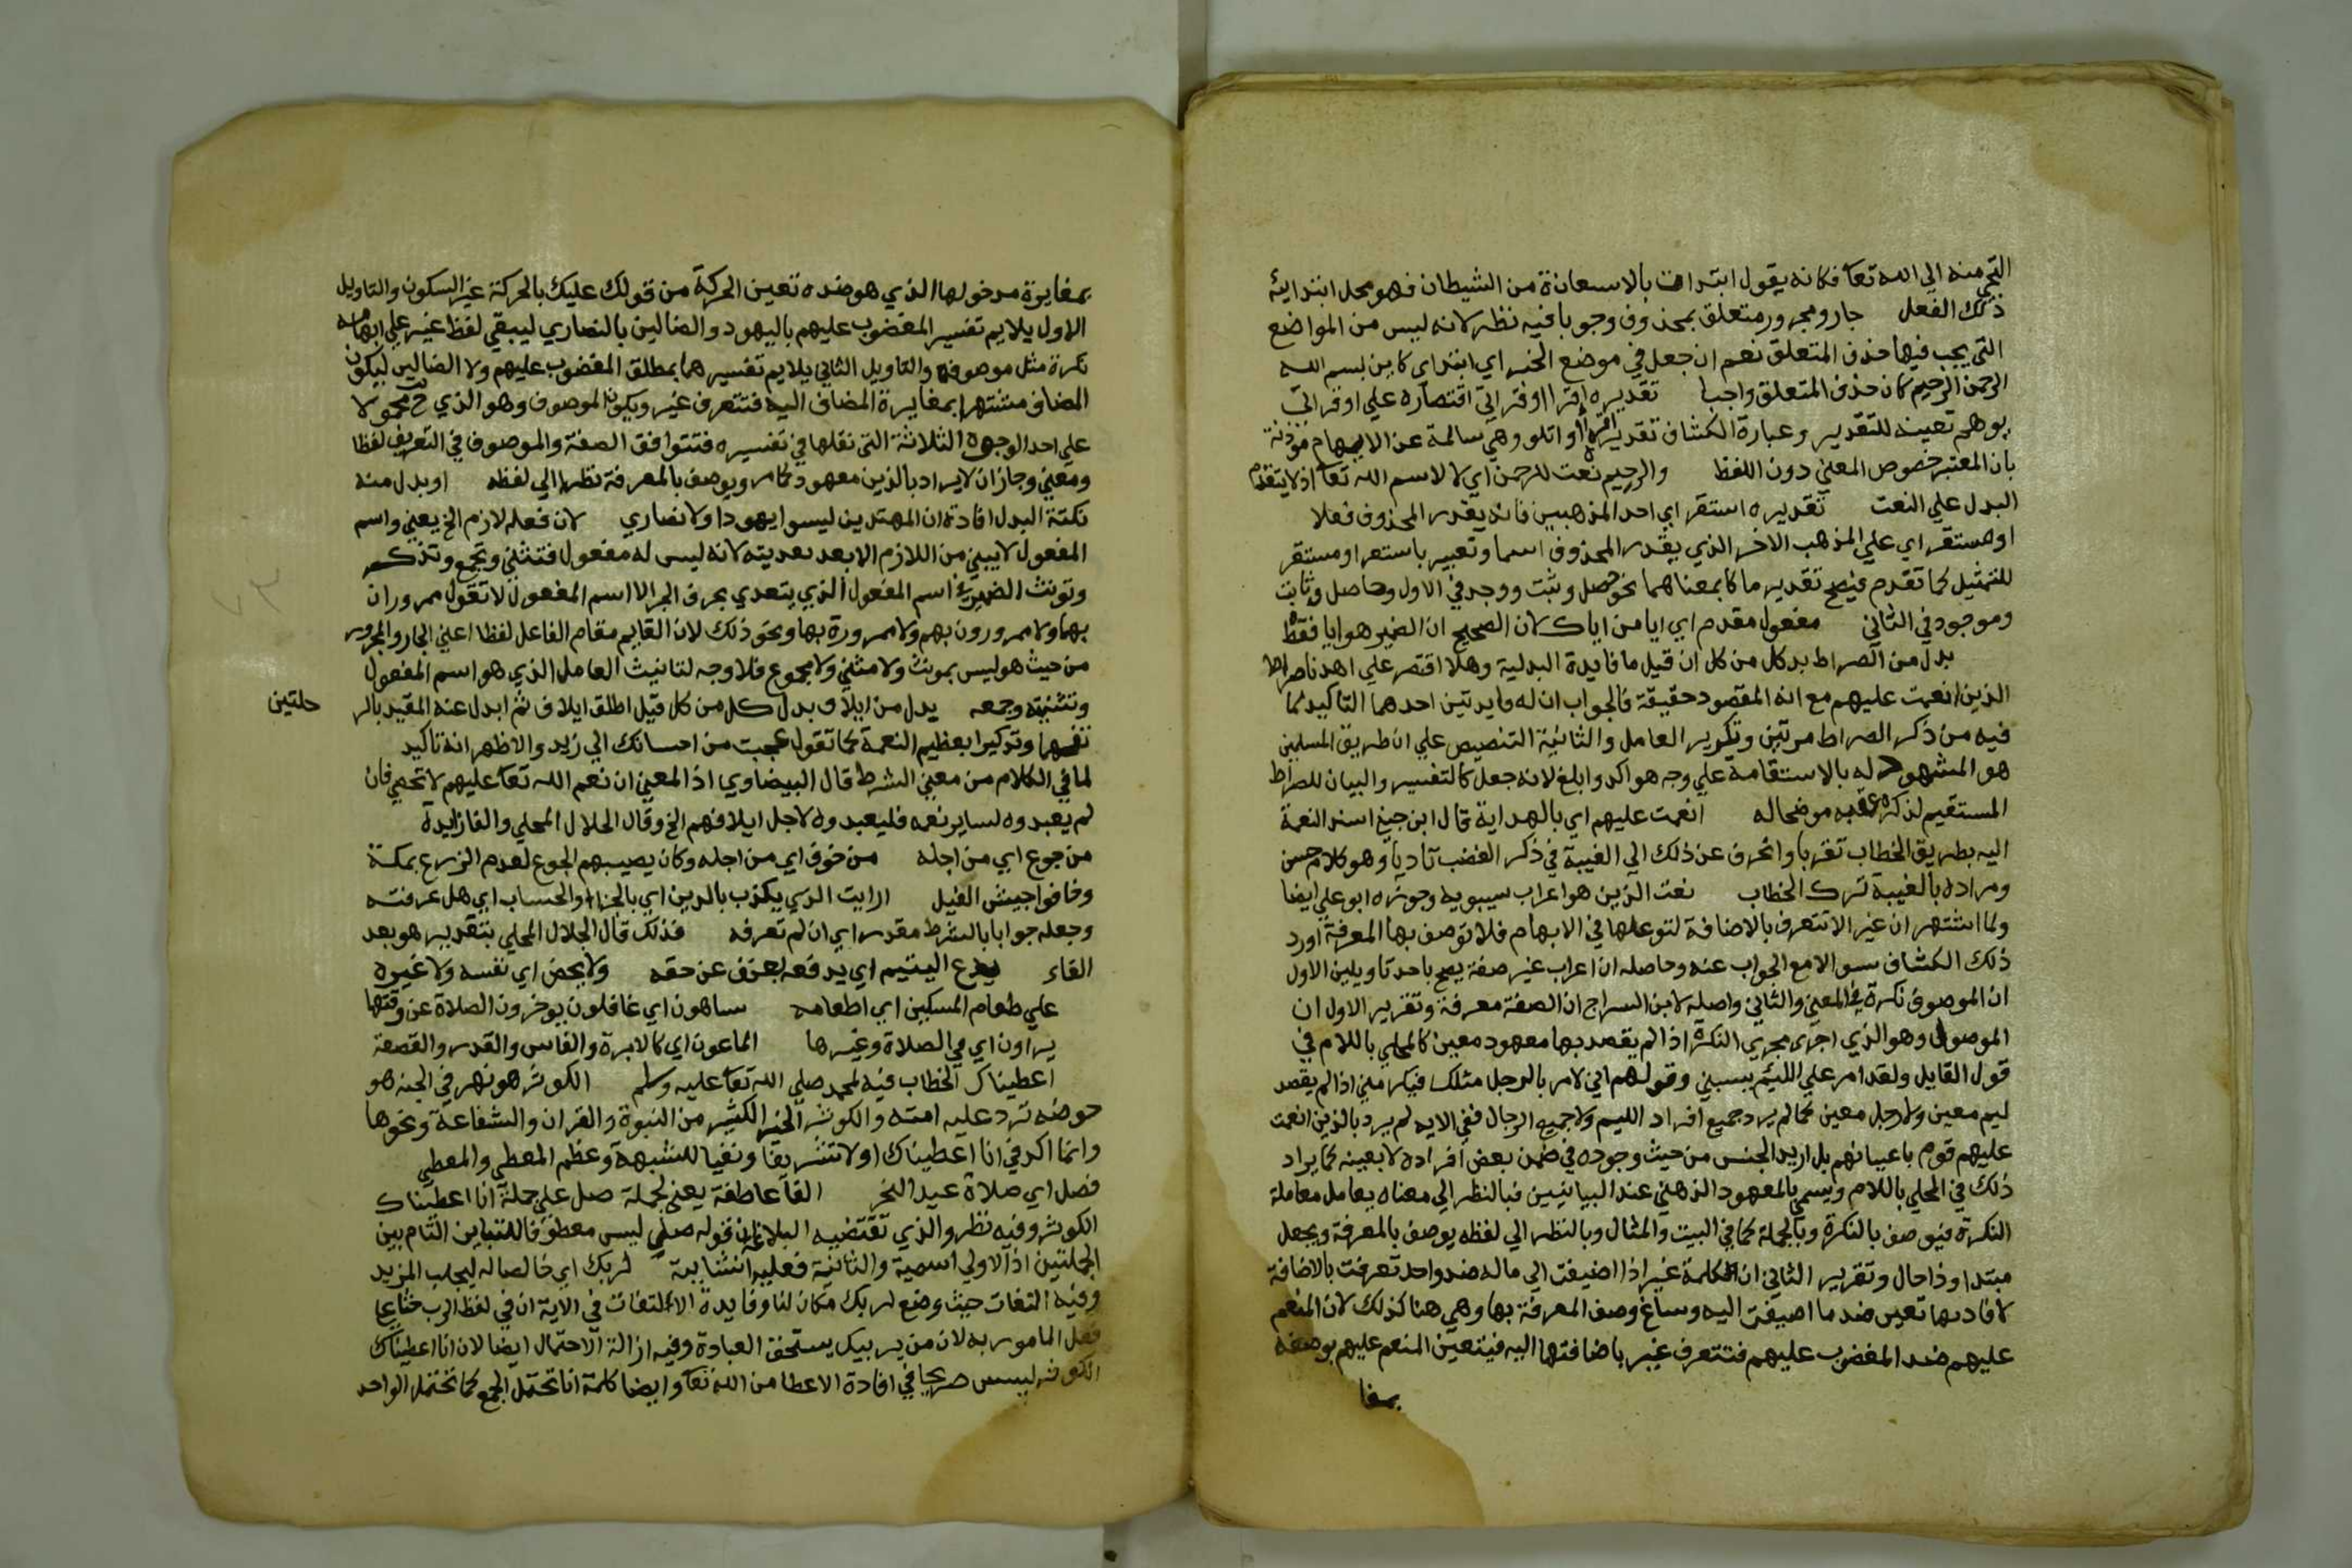 التجي منه الي الله تعا فكانه يقول ابتداي بالاسعاذة من الشيطان فهو محل ابتدايه
ذلك الفعل جار ومجرور متعلق بمحذوف وجوبا فيه نظر لانه ليس من المواضع
التي يجب فيها حذف المتعلق نعم ان جعل في موضع الخبر اي ابتداي كاين بسم الله
الرحمن الرحيم كان حذف المتعلق واجبا تقديره اقرا او قراتي اقتصاره علي او قراتي
يوهم تعينه للتقدير وعبارة الكشاف تقديره اقرا او اتلو وهي سالمة عن الايهام موذنة
بان المعتبر خصوص المعني دون اللفظ والرحيم نعت للرحمن اي لا لاسم الله تعا اذ لا يتقدم
البدل علي النعت تقديره استقر اي احد المذهبين فانه يقدر المحذوف فعلا
او مستقر اي علي المذهب الاخر الذي يقدر المحذوف اسما وتعبير باستقر او مستقر
للتمثيل كما تقدم فيصح تقدير ما كا بمعناهما نحو حصل وثبت ووجد في الاول وحاصل وثابت
وموجود في الثاني مفعول مقدم اي ايا من اياك لان الصحيح ان الضمير هو ايا فقط
بدل من الصراط بدكل من كل ان قيل ما فايدة البدلية وهلا اقتصر علي اهدنا صراط
الذين انعمت عليهم مع انه المقصود حقيقة فالجواب ان له فايدتين احدهما التاكيد لما
فيه من ذكر الصراط مرتين وتكرير العامل والثانية التنصيص علي ان طريق المسلمين
هو المشهود له بالاستقامة علي وجه هو اكد وابلغ لانه جعل كالتفسير والبيان للصراط
المستقيم لذكره عقبه موضحاله انعمت عليهم اي بالهداية قال ابن جني اسند النعمة
اليه بطريق الخطاب تقربا وانحرف عن ذلك الي الغيبة في ذكر الغضب تادبا وهو كلام حسن
ومراده بالغيبة ترك الخطاب نعت الذين هو اعراب سيبويه وجوزه ابو علي ايضا
ولما اشتهر ان غير لا تتعرف بالاضافة لتوغلها في الابهام فلا توصف بها المعرفة اورد
ذلك الكشاف سوالا مع الجواب عنه وحاصله ان اعراب غير صفة يصح باحد تاويلين الاول
ان الموصوف نكرة في المعني والثاني واصله لابن السراج ان الصفة معرفة وتقرير الاول ان
الموصول وهو الذي اجري مجري النكرة اذا لم يقصد بها معهود معين كالمحلي باللام في
قول القايل ولقد امر علي الليم يسبني وقولهم اني لامر بالرجل مثلك فيكرمني اذا لم يقصد
ليم معين ولا رجل معين كما لم يرد جميع افراد الليم ولا جميع الرجال ففي الايه لم يرد بالذين انعمت
عليهم قوم باعيانهم بل اريد الجنس من حيث وجوده في ضمن بعض افراده لا بعينه كما يراد
ذلك في المحلي باللام ويسمي بالمعهود الذهني عند البيانيين فبالنظر الي معناه يعامل معاملة
النكرة فيوصف بالنكرة وبالجملة كما في البيت والمثال وبالنظر الي لفظه يوصف بالمعرفة ويجعل
مبتدا وذا حال وتقرير الثاني ان كلمة غير اذا اضيفت الي ما له ضد واحد تعرفت بالاضافة
لافادتها تعين ضد ما اضيفت اليه وساغ وصف المعرفة بها وهي هنا كذلك لان المنعم
عليهم ضد المغضوب عليهم فتتعرف غير باضافتها اليه فيتعين المنعم عليهم بوصفه
بمغا
بمغايرة مدخولها الذي هو ضده تعين الحركة من قولك عليك بالحركة غير السكون والتاويل
الاول يلايم تفسير المغضوب عليهم باليهود والضالين بالنصاري ليبقي لفظ غير علي ابهامه
نكرة مثل موصوفه والتاويل الثاني يلايم تفسيرهما بمطلق المغضوب عليهم ولا الضالين ليكون
المضاف مشتهرا بمغايرة المضاف اليه فتتعرف غير ويكون الموصوف وهو الذي ح محمولا
علي احد الوجوه الثلاثة التي نقلها في تفسيره فتتوافق الصفة والموصوف في التعريف لفظا
ومعني وجاز ان لا يراد بالذين معهود كما مر ويوصف بالمعرفة نظرا الي لفظه او بدل منه
نكتة البدل افادة ان المهتدين ليسوا يهودا ولا نصاري لان فعله لازم الخ يعني واسم
المفعول لا يبني من اللازم الا بعد تعديته لانه ليس له مفعول فتثني وتجمع وتذكر
وتونث الضمير في اسم المفعول الذي يتعدي بحرف الجر لا اسم المفعول لا تقول ممروران
بهما ولا ممرورون بهم ولا ممرورة بها ونحو ذلك لان القايم مقام الفاعل لفظا اعني الجار والمجرور
من حيث هو ليس بمونث ولا مثني ولا مجموع فلا وجه لتانيث العامل الذي هو اسم المفعول
وتثنيته وجمعه بدل من ايلاف بدل كل من كل قيل اطلق ايلاف ثم ابدل عنه المقيد بالر
حلتين
تفخيما وتذكيرا بعظيم النعمة كما تقول عجبت من احسانك الي زيد والاظهر انه تاكيد
لما في الكلام من معني الشرط قال البيضاوي اذ المعني ان نعم الله تعا عليهم لا تحصي فان
لم يعبدوه لساير نعمه فليعبدوه لاجل ايلافهم الخ وقال الجلال المحلي والفا زايدة
من جوع اي من اجله من خوف اي من اجله وكان يصيبهم الجوع لعدم الزرع بمكة
وخافوا جيش الفيل ارايت الذي يكذب بالدين اي بالجزا والحساب اي هل عرفته
وجعله جوابا بالشرط مقدر اي ان لم تعرفه فذلك قال الجلال المحلي بتقدير هو بعد
الفاء يدع اليتيم اي يدفعه بعنف عن حقه ولا يحض اي نفسه ولا غيره
علي طعام المسكين اي اطعامه ساهون اي غافلون يوخرون الصلاة عن وقتها
يراون اي في الصلاة وغيرها الماعون اي كالابرة والفاس والقدر والقصعة
اعطيناك الخطاب فيه لمحمد صلي الله تعا عليه وسلم الكوثر هو نهر في الجنه هو
حوضه ترد عليه امته والكوثر الخير الكثير من النبوة والقران والشفاعة ونحوها
وانما اكد في انا اعطيناك اولا تشريفا ونفيا للشبهة وعظم المعطي والمعطي
فصل اي صلاة عيد النحر الفا عاطفة يعني لجملة صل علي جملة انا اعطيناك
الكوثر وفيه نظر والذي تقتضيه البلاغة ان قوله صلي ليس معطوفا للتباين التام بين
الجملتين اذ الاولي اسمية والثانية فعليه انشاييه لربك اي خالصا له ليجلب المزيد
وفيه التفات حيث وضع لربك مكان لنا وفايدة الالتفات في الاية ان في لفظ الرب حثا علي
فعل المامور به لان من يربيك يستحق العبادة وفيه ازالة الاحتمال ايضا لان انا اعطيناك
الكوثر ليس صريحا في افادة الاعطا من الله تعا وايضا كلمة انا تحتمل الجمع كما تحتمل الواحد